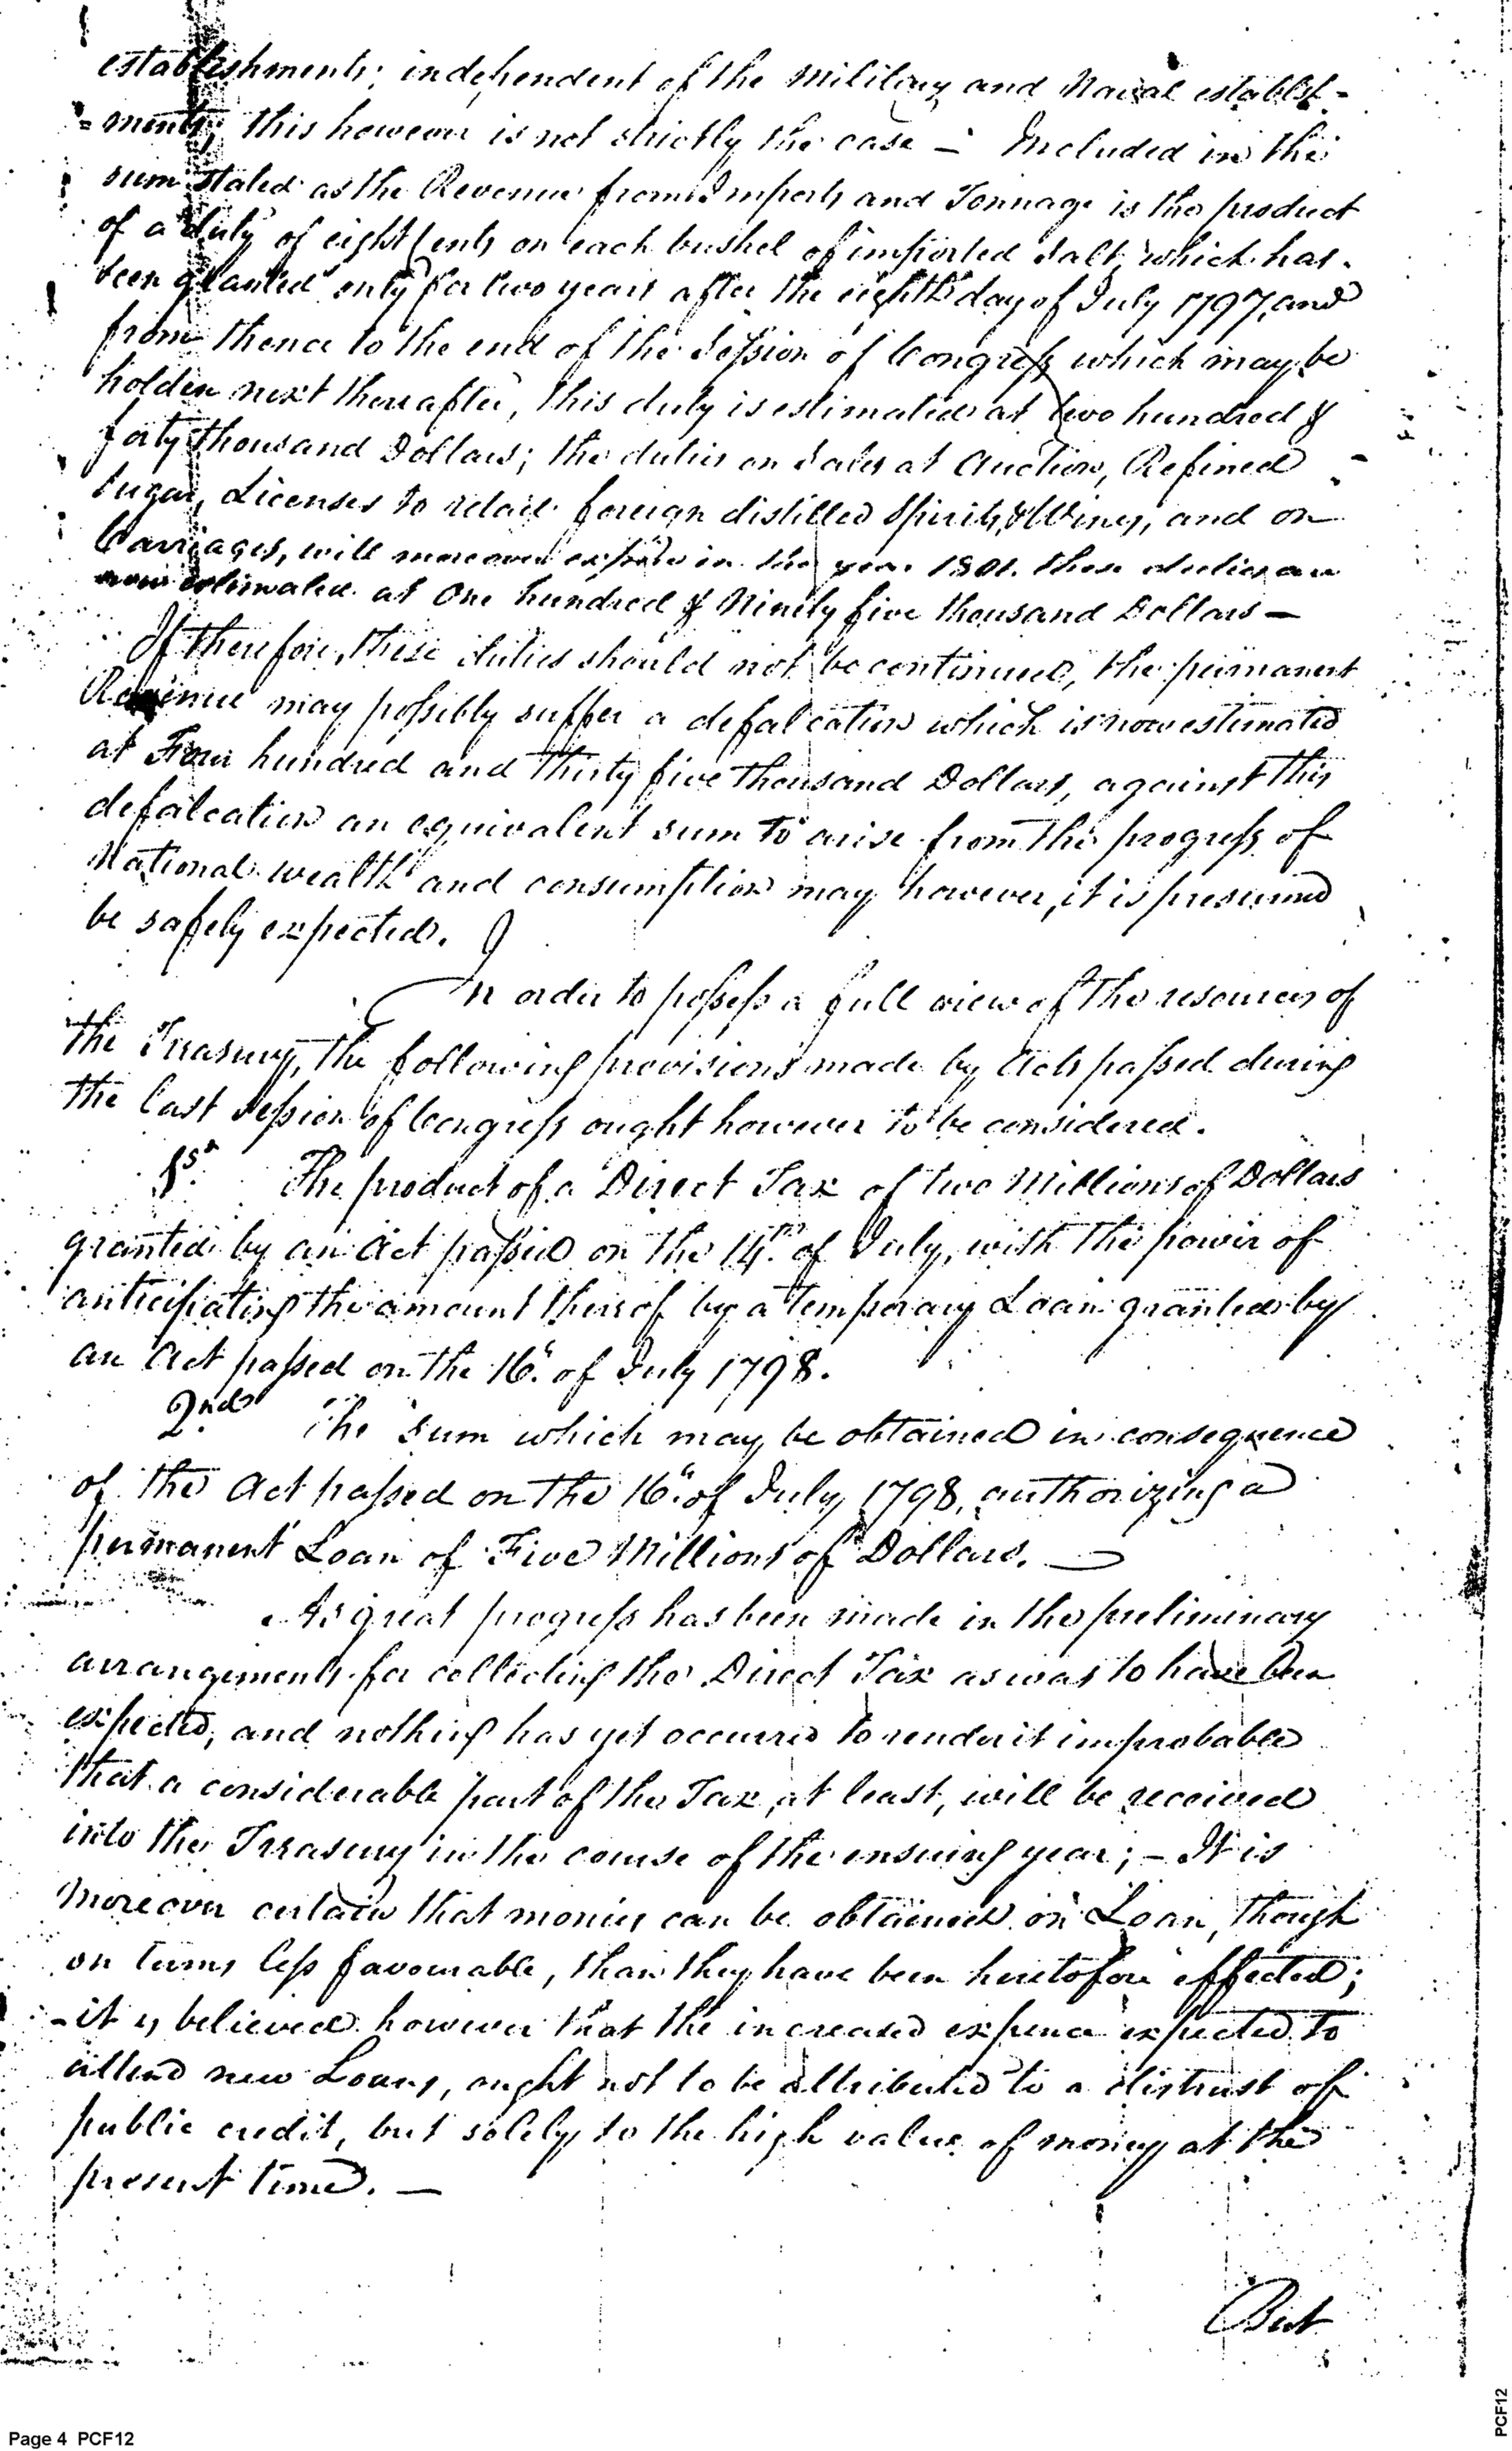 establishments; independent of the Military and Naval establish=
=ments; this however is not strictly the case — Included in the
sum stated as the Revenue from Imports and Tonnage is the product
of a duty of eight Cents on each bushel of imported Salt, which has
been granted only for two years after the eighth day of July 1797, and
from thence to the end of the Session of Congress which may be
holden next thereafter, this duty is estimated at two hundred &
forty thousand Dollars; the duties on Sales at Auction, Refined
Sugar, Licenses to retail foreign distilled Spirits, & Wines, and on
Carriages, will moreover expire in the year 1801. these duties are
now estimated at One hundred & Ninety five thousand Dollars —
If therefore, these duties should not be continued, the permanent
Revenue may possibly suffer a defalcation which is now estimated
at Four hundred and Thirty five thousand Dollars, against this
defalcation an equivalent sum to arise from the progress of
National wealth and consumption may however, it is presumed
be safely expected.
In order to possess a full view of the resources of
the Treasury, the following provisions made by Acts passed during
the last Session of Congress ought however to be considered.
1st. The product of a Direct Tax of two Millions of Dollars
granted by an Act passed on the 14th. of July, with the power of
anticipating the amount thereof by a temporary Loan granted by
an Act passed on the 16". of July 1798.
2nd. The sum which may be obtained in consequence
of the Act passed on the 16". of July 1798, authorizing a
permanent Loan of Five Millions of Dollars. —
As great progress has been made in the preliminary
arrangements for collecting the Direct Tax as was to have been
expected, and nothing has yet occurred to render it improbable
that a considerable part of the Tax, at least, will be received
into the Treasury in the course of the ensuing year; — It is
moreover certain that monies can be obtained on Loan, though
on terms less favourable, than they have been heretofore effected;
- it is believed however that the increased expence expected to
attend new Loans, ought not to be attributed to a distrust of
public credit, but solely to the high value of money at the
present time. —
But
Page 4 PCF12
PCF12